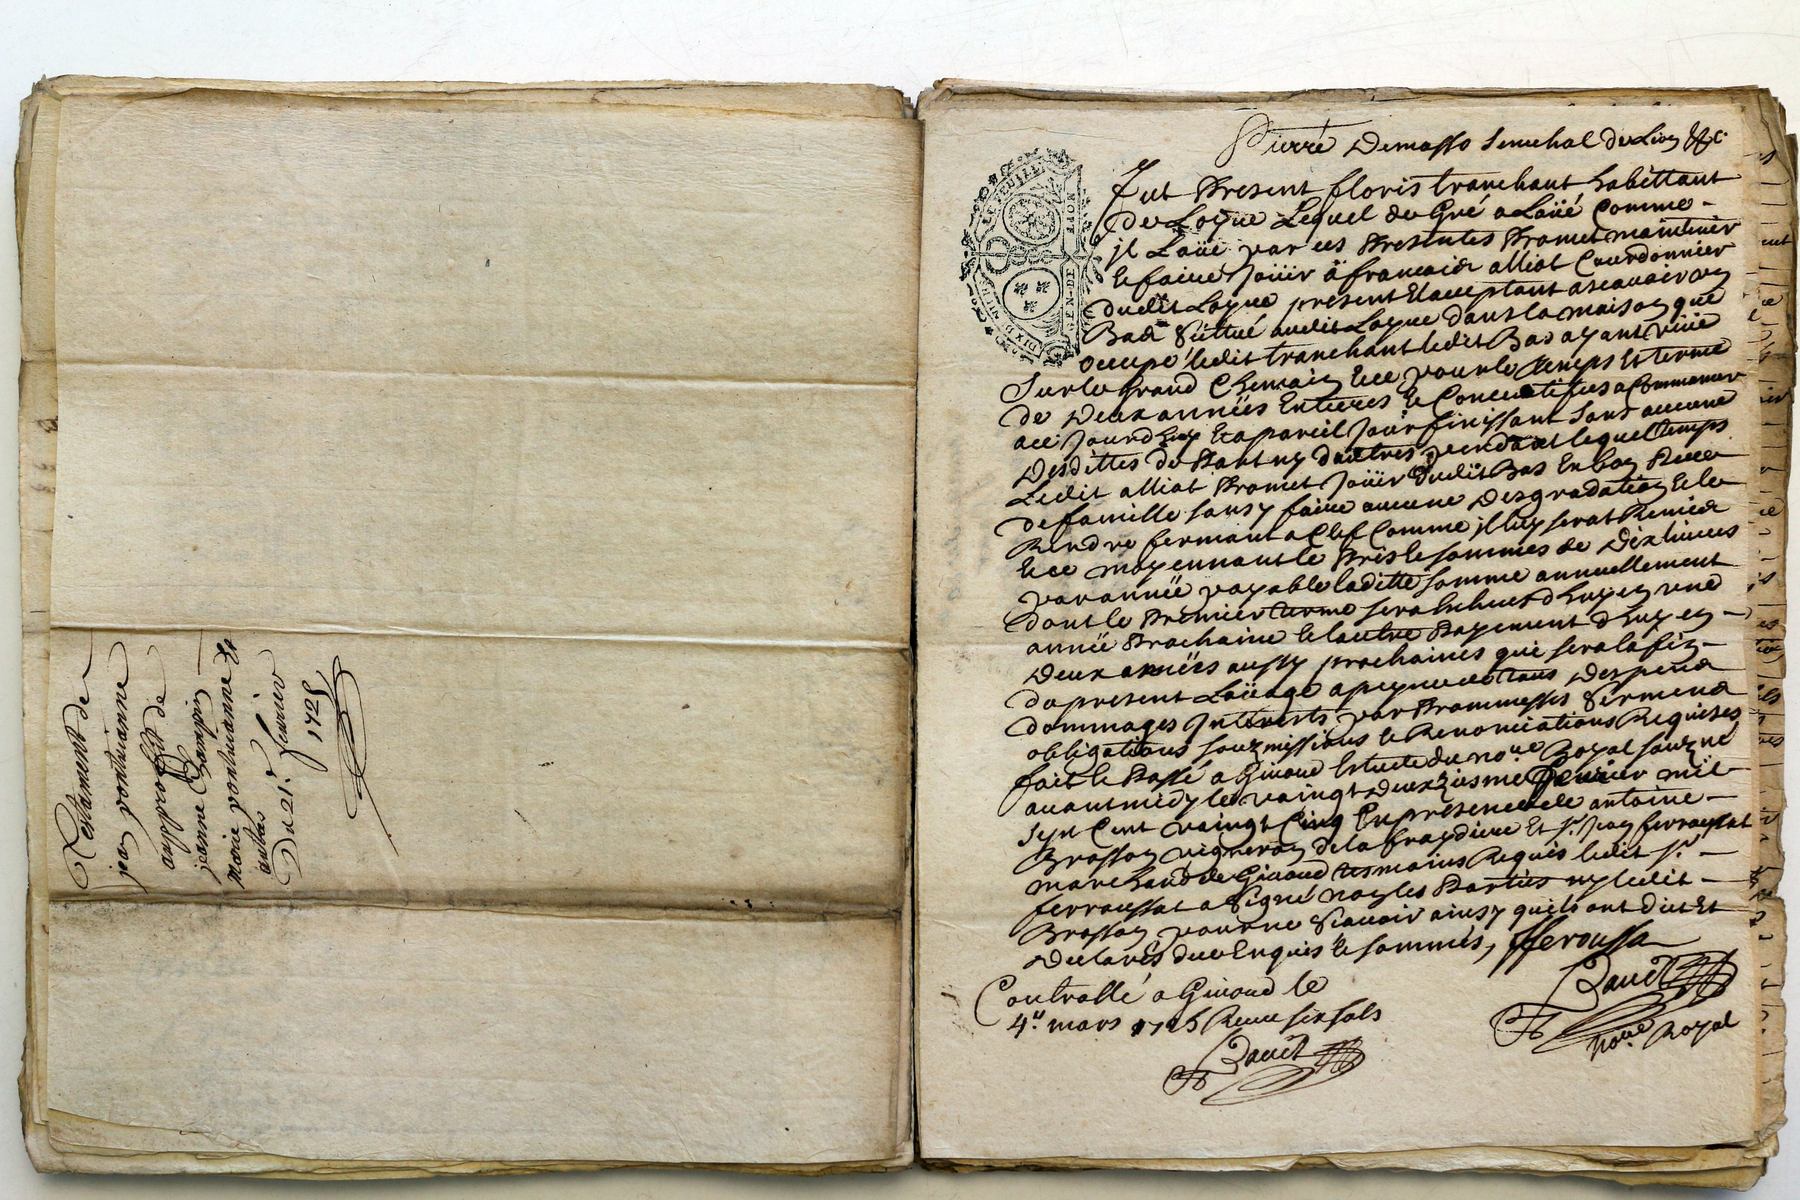 Testament de
jean pontuianne
aupproffit de
jeanne
marie pontuianne Et
autres
Du 21.e feurier
1725
Pierre Demasso Senechal de Lion &c
Fut Present floris tranchant habittant
de Loyne Lequel de Gré a Laüé Comme
jl Laüe par ces Presentes Promet maintenir
le faire Joüir a francois alliot Courdonnier
dudit Loyne present Et aceptant ascauoir un
Bas Sittué audit Loyne dans la maison que
occupé ledit tranchant ledit Bas ayant
Sur le Grand Chemain Ece pour le temps Et terme
de Deux années Entieres Et Concecutifues a Commancer
ace Jourdhuy Et apareil Jour finissant Sans aucune
Desdittes de Part ny dautres pendant lequel temps
Ledit alliot Promet Joüir dudit Bas En bon Pere
de famille sans y faire aucune Desgradation Et le
Rendre fermant a Clef Comme jl luy serat Remice
Ece moyennant le Pris Et sommes de Dix liures
par année payable laditte somme annuellement
dont le Premier terme sera dhuy en une
année Prochaine Et lautre Payement dhuy en
Deux années aussy prochaines qui sera la fin
du present Loüage apeyne de tous Despens
dommages Jnterests par Prommesses Sermens
obbligations souzmissions Et Renonciations Requises
fait Et Passé a Giuord Estude du no.re Royal souzné
auant midy le vaingt Deuxziesme feurier mil
sept Cent vaingt Cinq En presence de antoine
Brosson vigneron de la fraydiere Et S.r Jean ferroussat
marchand de Giuord tesmoins Requis ledit S.r
ferroussat a Signé non les Parties ny ledit
Brosson pour ne Scauoir ainsy quils ont dict Et
Declarés de ce Enquis Et sommés, fferoussa
Contrallé a Giuord le
4.e mars 1725 Receu six sols
No.re Royal